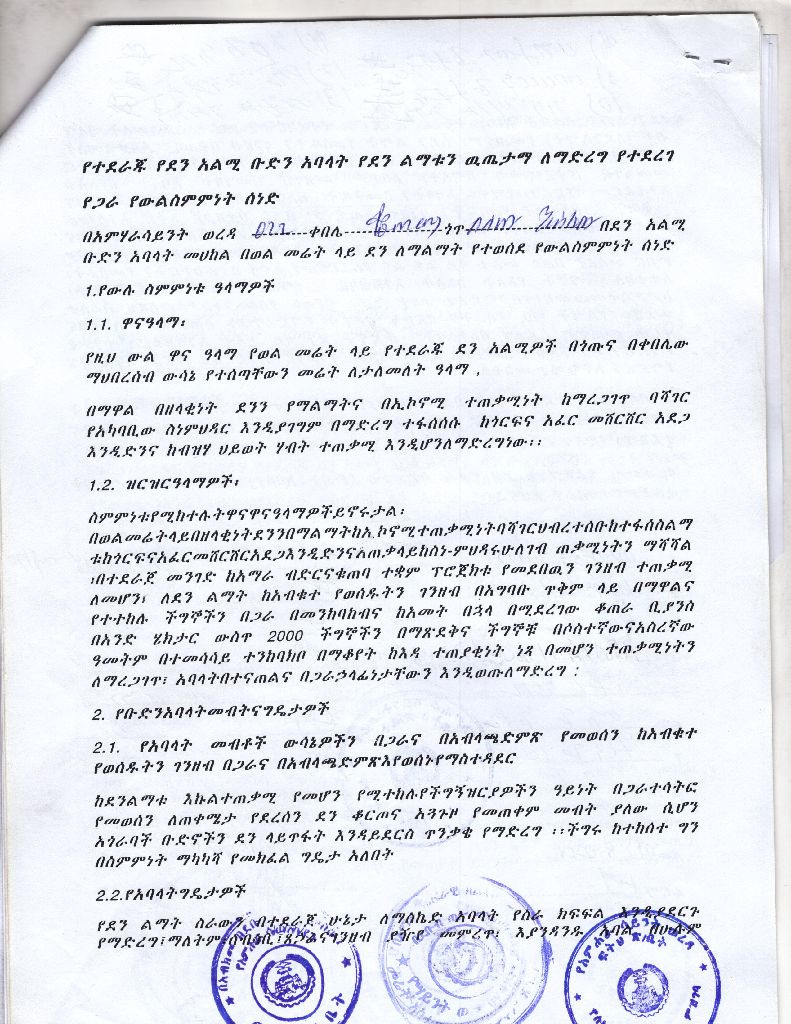 የተደራጁ የደን አልሚ ቡድን አባላት የደን ልማቱን ዉጤታማ ለማድረግ የተደረገ
የጋራ የውልስምምነት ሰነድ
በአምሃራሳይንት ወረዳ ቀበሌ ጎጥ በደን አልሚ
ቡድን አባላት መሀከል በወል መሬት ላይ ደን ለማልማት የተወሰደ የውልስምምነት ሰነድ
1.የውሉ ስምምነቱ ዓላማዎች
1.1. ዋናዓላማ፡
የዚህ ውል ዋና ዓላማ የወል መሬት ላይ የተደራጁ ደን አልሚዎች በጎጡና በቀበሌው
ማህበረሰብ ውሳኔ የተሰጣቸውን መሬት ለታለመለት ዓላማ ,
በማዋል በዘላቂነት ደንን የማልማትና በኢኮኖሚ ተጠቃሚነት ከማረጋገጥ ባሻገር
የአካባቢው ስነምህዳር እንዲያገግም በማድረግ ተፋሰሰሱ ከጎርፍና አፈር መሸርሸር አደጋ
እንዲድንና ከብዝሃ ህይወት ሃብት ተጠቃሚ እንዲሆንለማድረግነው፡፡
1.2. ዝርዝርዓላማዎች፡
ስምምነቱየሚከተሉትዋናዋናዓላማዎችይኖሩታል፡
በወልመሬትላይበዘላቂነትደንንበማልማትከኢኮኖሚተጠቃሚነትባሻገርህብረተሰቡከተፋሰስልማ
ቱከጎርፍናአፈርመሸርሸርአደጋእንዲድንናአጠቃላይከስነ-ምህዳሩሁለገብ ጠቃሚነትን ማሻሻል
፡በተደራጀ መንገድ ከአማራ ብድርናቁጠባ ተቋም ፕሮጀክቱ የመደበዉን ገንዘብ ተጠቃሚ
ለመሆን፤ ለደን ልማት ከአብቁተ የወሰዱትን ገንዘብ በአግባቡ ጥቅም ላይ በማዋልና
የተተከሉ ችግኞችን በጋራ በመንከባከብና ከአመት በኋላ በሚደረገው ቆጠራ ቢያንስ
በአንድ ሄክታር ውስጥ 2000 ችግኞችን በማጽደቅና ችግኞቹ በሶስተኛውናአስረኛው
ዓመትም በተመሳሳይ ተንከባክቦ በማቆየት ከእዳ ተጠያቂነት ነጻ በመሆን ተጠቃሚነትን
ለማረጋገጥ፤ አባላትበተናጠልና በጋራኃላፊነታቸውን እንዲወጡለማድረግ ፡
2. የቡድንአባላትመብትናግዴታዎች
2.1. የአባላት መብቶች ውሳኔዎችን በጋራና በአብላጫድምጽ የመወሰን ከአብቁተ
የወሰዱትን ገንዘብ በጋራና በአብላጫድምጽእየወሰኑየማስተዳደር
ከደንልማቱ እኩልተጠቃሚ የመሆን የሚተከሉየችግኝዝርያዎችን ዓይነት በጋራተሳትፎ
የመወሰን ለጠቀሜታ የደረሰን ደን ቆርጦና አጓጉዞ የመጠቀም መብት ያለው ሲሆን
አጎራባች ቡድኖችን ደን ላይጥፋት እንዳይደርስ ጥንቃቄ የማድረግ ፡፡ችግሩ ከተከሰተ ግን
በስምምነት ማካካሻ የመክፈል ግዴታ አለበት
2.2.የአባላትግዴታዎች
የደን ልማት ስራውን በተደራጀ ሁኔታ ለማስኬድ አባላት የስራ ክፍፍል እንዲያደርጉ
የማድረግ፤ማለትም ገንዘብ ያዥ መምረጥ፤ እያንዳንዱ አባል በሁሉም